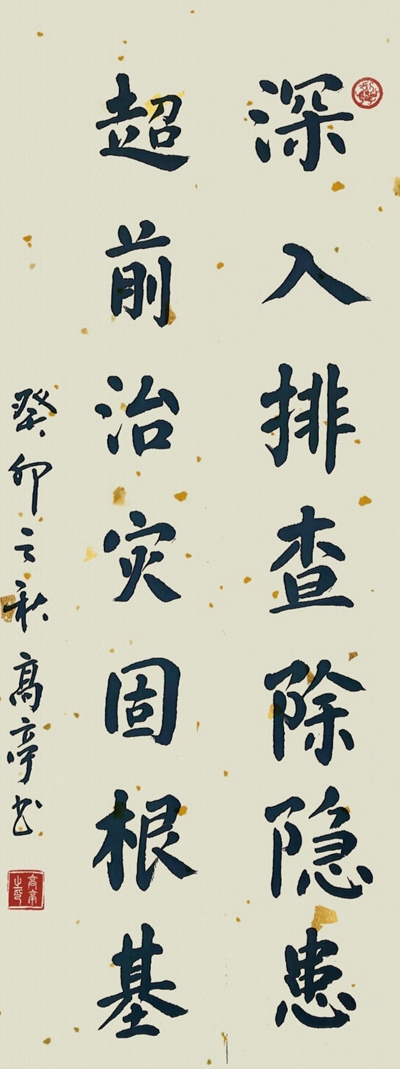 深入排查除隐患
超前治灾固根基
癸卯之秋高亭书
高亭之印